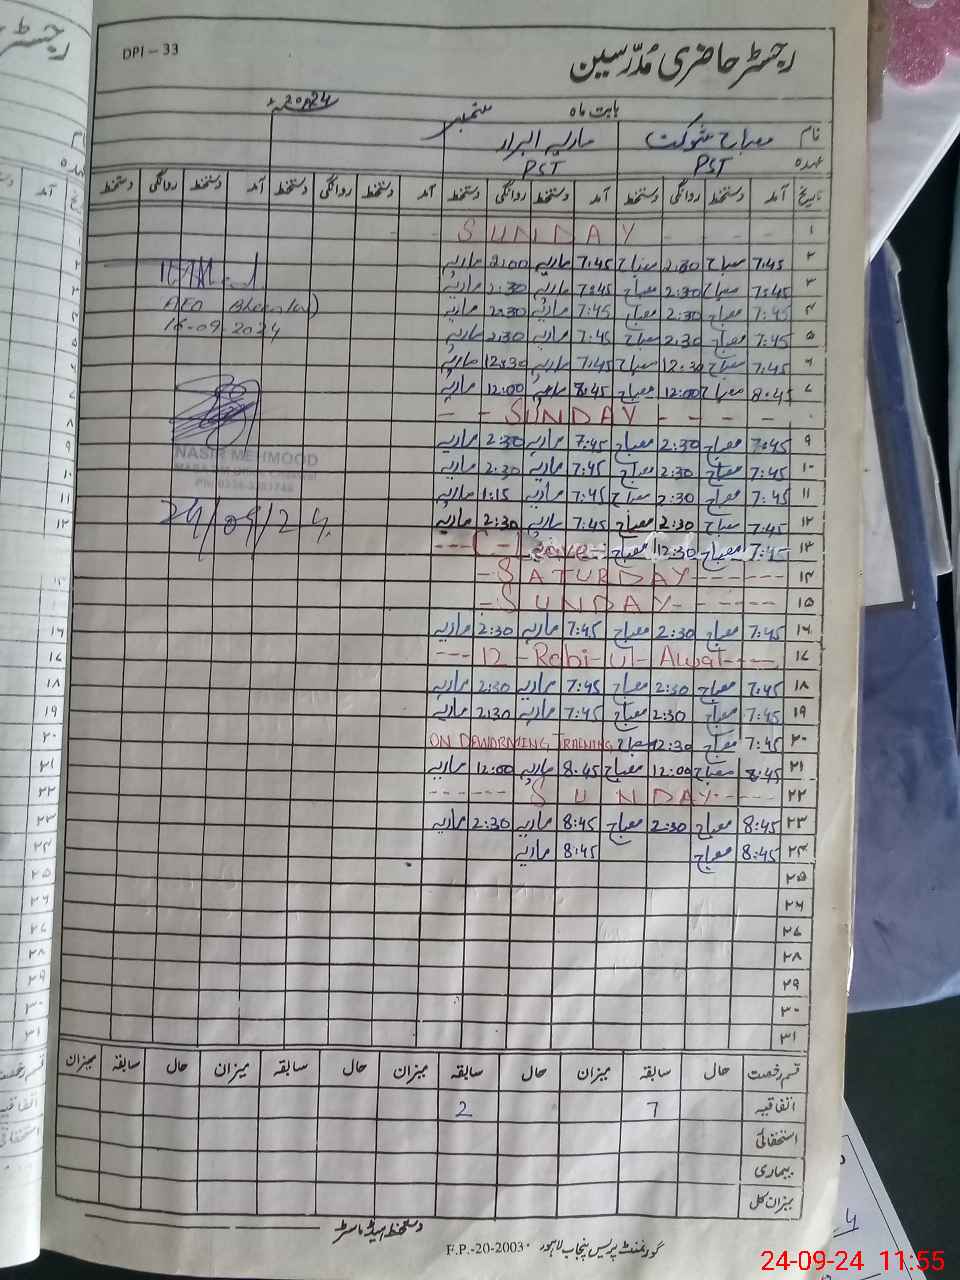 DPI – 33
رجسٹر حاضری مُدرّسین
بابت ماہ ستمبر 2024ء
نام مصباح شوکت ماریہ ابرار
عہدہ PST PST
تاریخ آمد دستخط روانگی دستخط آمد دستخط روانگی دستخط آمد دستخط روانگی دستخط آمد دستخط روانگی دستخط
۱ SUNDAY
۲ 7:45 مصباح 2:30 مصباح 7:45 ماریہ 2:00 ماریہ
۳ 7:45 مصباح 2:30 مصباح 7:45 ماریہ 2:30 ماریہ
۴ 7:45 مصباح 2:30 مصباح 7:45 ماریہ 2:30 ماریہ
۵ 7:45 مصباح 2:30 مصباح 7:45 ماریہ 2:30 ماریہ
۶ 7:45 مصباح 12:30 مصباح 7:45 ماریہ 12:30 ماریہ
۷ 8:45 مصباح 12:00 مصباح 8:45 ماریہ 12:00 ماریہ
- - SUNDAY - - - -
۹ 7:45 مصباح 2:30 مصباح 7:45 ماریہ 2:30 ماریہ
۱۰ 7:45 مصباح 2:30 مصباح 7:45 ماریہ 2:30 ماریہ
۱۱ 7:45 مصباح 2:30 مصباح 7:45 ماریہ 1:15 ماریہ
۱۲ 7:45 مصباح 2:30 مصباح 7:45 ماریہ 2:30 ماریہ
۱۳ 7:45 مصباح 12:30 مصباح --- C-Leave-
۱۴ - SATURDAY ------
۱۵ - SUNDAY ------
۱۶ 7:45 مصباح 2:30 مصباح 7:45 ماریہ 2:30 ماریہ
۱۷ --- 12 - Rabi-ul-Awal----
۱۸ 7:45 مصباح 2:30 مصباح 7:45 ماریہ 2:30 ماریہ
۱۹ 7:45 مصباح 2:30 مصباح 7:45 ماریہ 2:30 ماریہ
۲۰ 7:45 مصباح 12:30 مصباح ON DEWORMING TRAINING
۲۱ 8:45 مصباح 12:00 مصباح 8:45 ماریہ 12:00 ماریہ
۲۲ ------ SUNDAY -----
۲۳ 8:45 مصباح 2:30 مصباح 8:45 ماریہ 2:30 ماریہ
۲۴ 8:45 مصباح 8:45 ماریہ
۲۵
۲۶
۲۷
۲۸
۲۹
۳۰
۳۱
AEO
16-09-2024
NASIR MEHMOOD
24/09/24
قسم رخصت حال سابقہ میزان حال سابقہ میزان حال سابقہ میزان حال سابقہ میزان
اتفاقیہ 7 2
استحقاقی
بیماری
میزان کل
دستخط ہیڈ ماسٹر
گورنمنٹ پریس پنجاب لاہور F.P.-20-2003
24-09-24 11:55